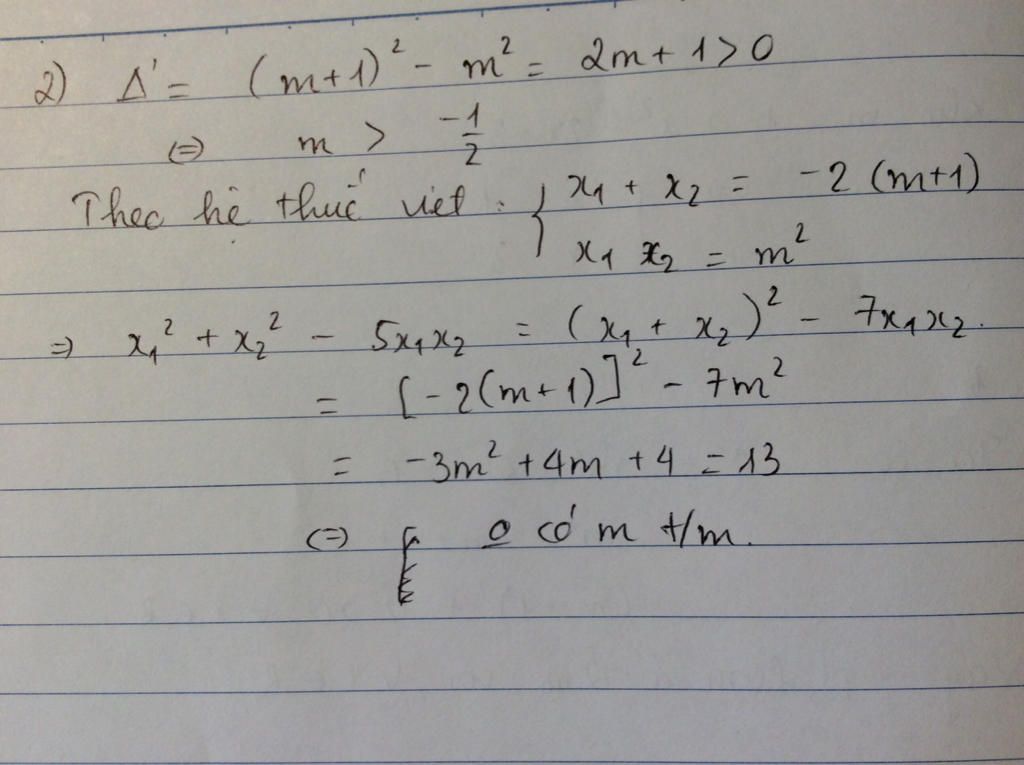 2) Δ' = (m+1)² - m² = 2m + 1 > 0
⇔ m > -1/2
Theo hệ thức viet : { x₁ + x₂ = -2 (m+1)
x₁ x₂ = m²
⇒ x₁² + x₂² - 5x₁x₂ = (x₁ + x₂)² - 7x₁x₂.
= [-2(m+1)]² - 7m²
= -3m² + 4m + 4 = 13
⇔ [ o có m t/m.